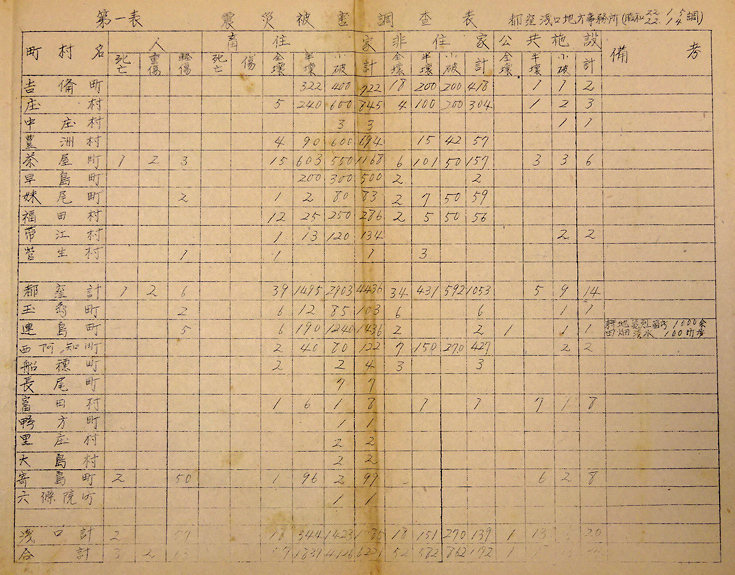 第一表 震災被害調査表 都窪浅口地方事務所 (昭和22.1.5 22.14調)
町村名 人 畜 住家 非住家 公共施設 備考
死亡 重傷 軽傷 死亡 傷 全壊 半壊 小破 計 全壊 半壊 小破 計 全壊 半壊 小破 計
吉備町 322 400 722 18 200 200 418 1 1 2
庄村 5 240 600 845 4 100 200 304 1 2 3
中庄村 3 3 1 1
豊洲村 4 90 600 694 15 42 57
茶屋町 1 2 3 15 603 550 1168 6 101 50 157 3 3 6
早島町 200 300 500 2 2
妹尾町 2 1 2 80 83 2 7 50 59
福田村 12 25 250 286 2 5 50 56
帯江村 1 13 120 134 2 2
菅生村 1 1 1 3
都窪計 1 2 6 39 1495 2903 4436 34 431 592 1053 5 9 14
玉島町 2 6 12 85 103 6 6 1 1
連島町 5 6 190 1240 1436 2 2 1 1 1
西阿知町 2 40 80 122 7 150 270 427 2 2
船穂町 2 2 4 3 3
長尾町 7 7
富田村 1 6 1 8 1 1 7 1 8
鴨方町 1 1
里庄村 2 2
大島村 2 2
寄島町 2 50 1 96 2 99 6 2 8
六條院町 1 1
浅口計 2 57 18 344 1423 1785 18 151 270 139 1 13 20
合計 3 2 63 57 1839 4326 6221 52 582 862